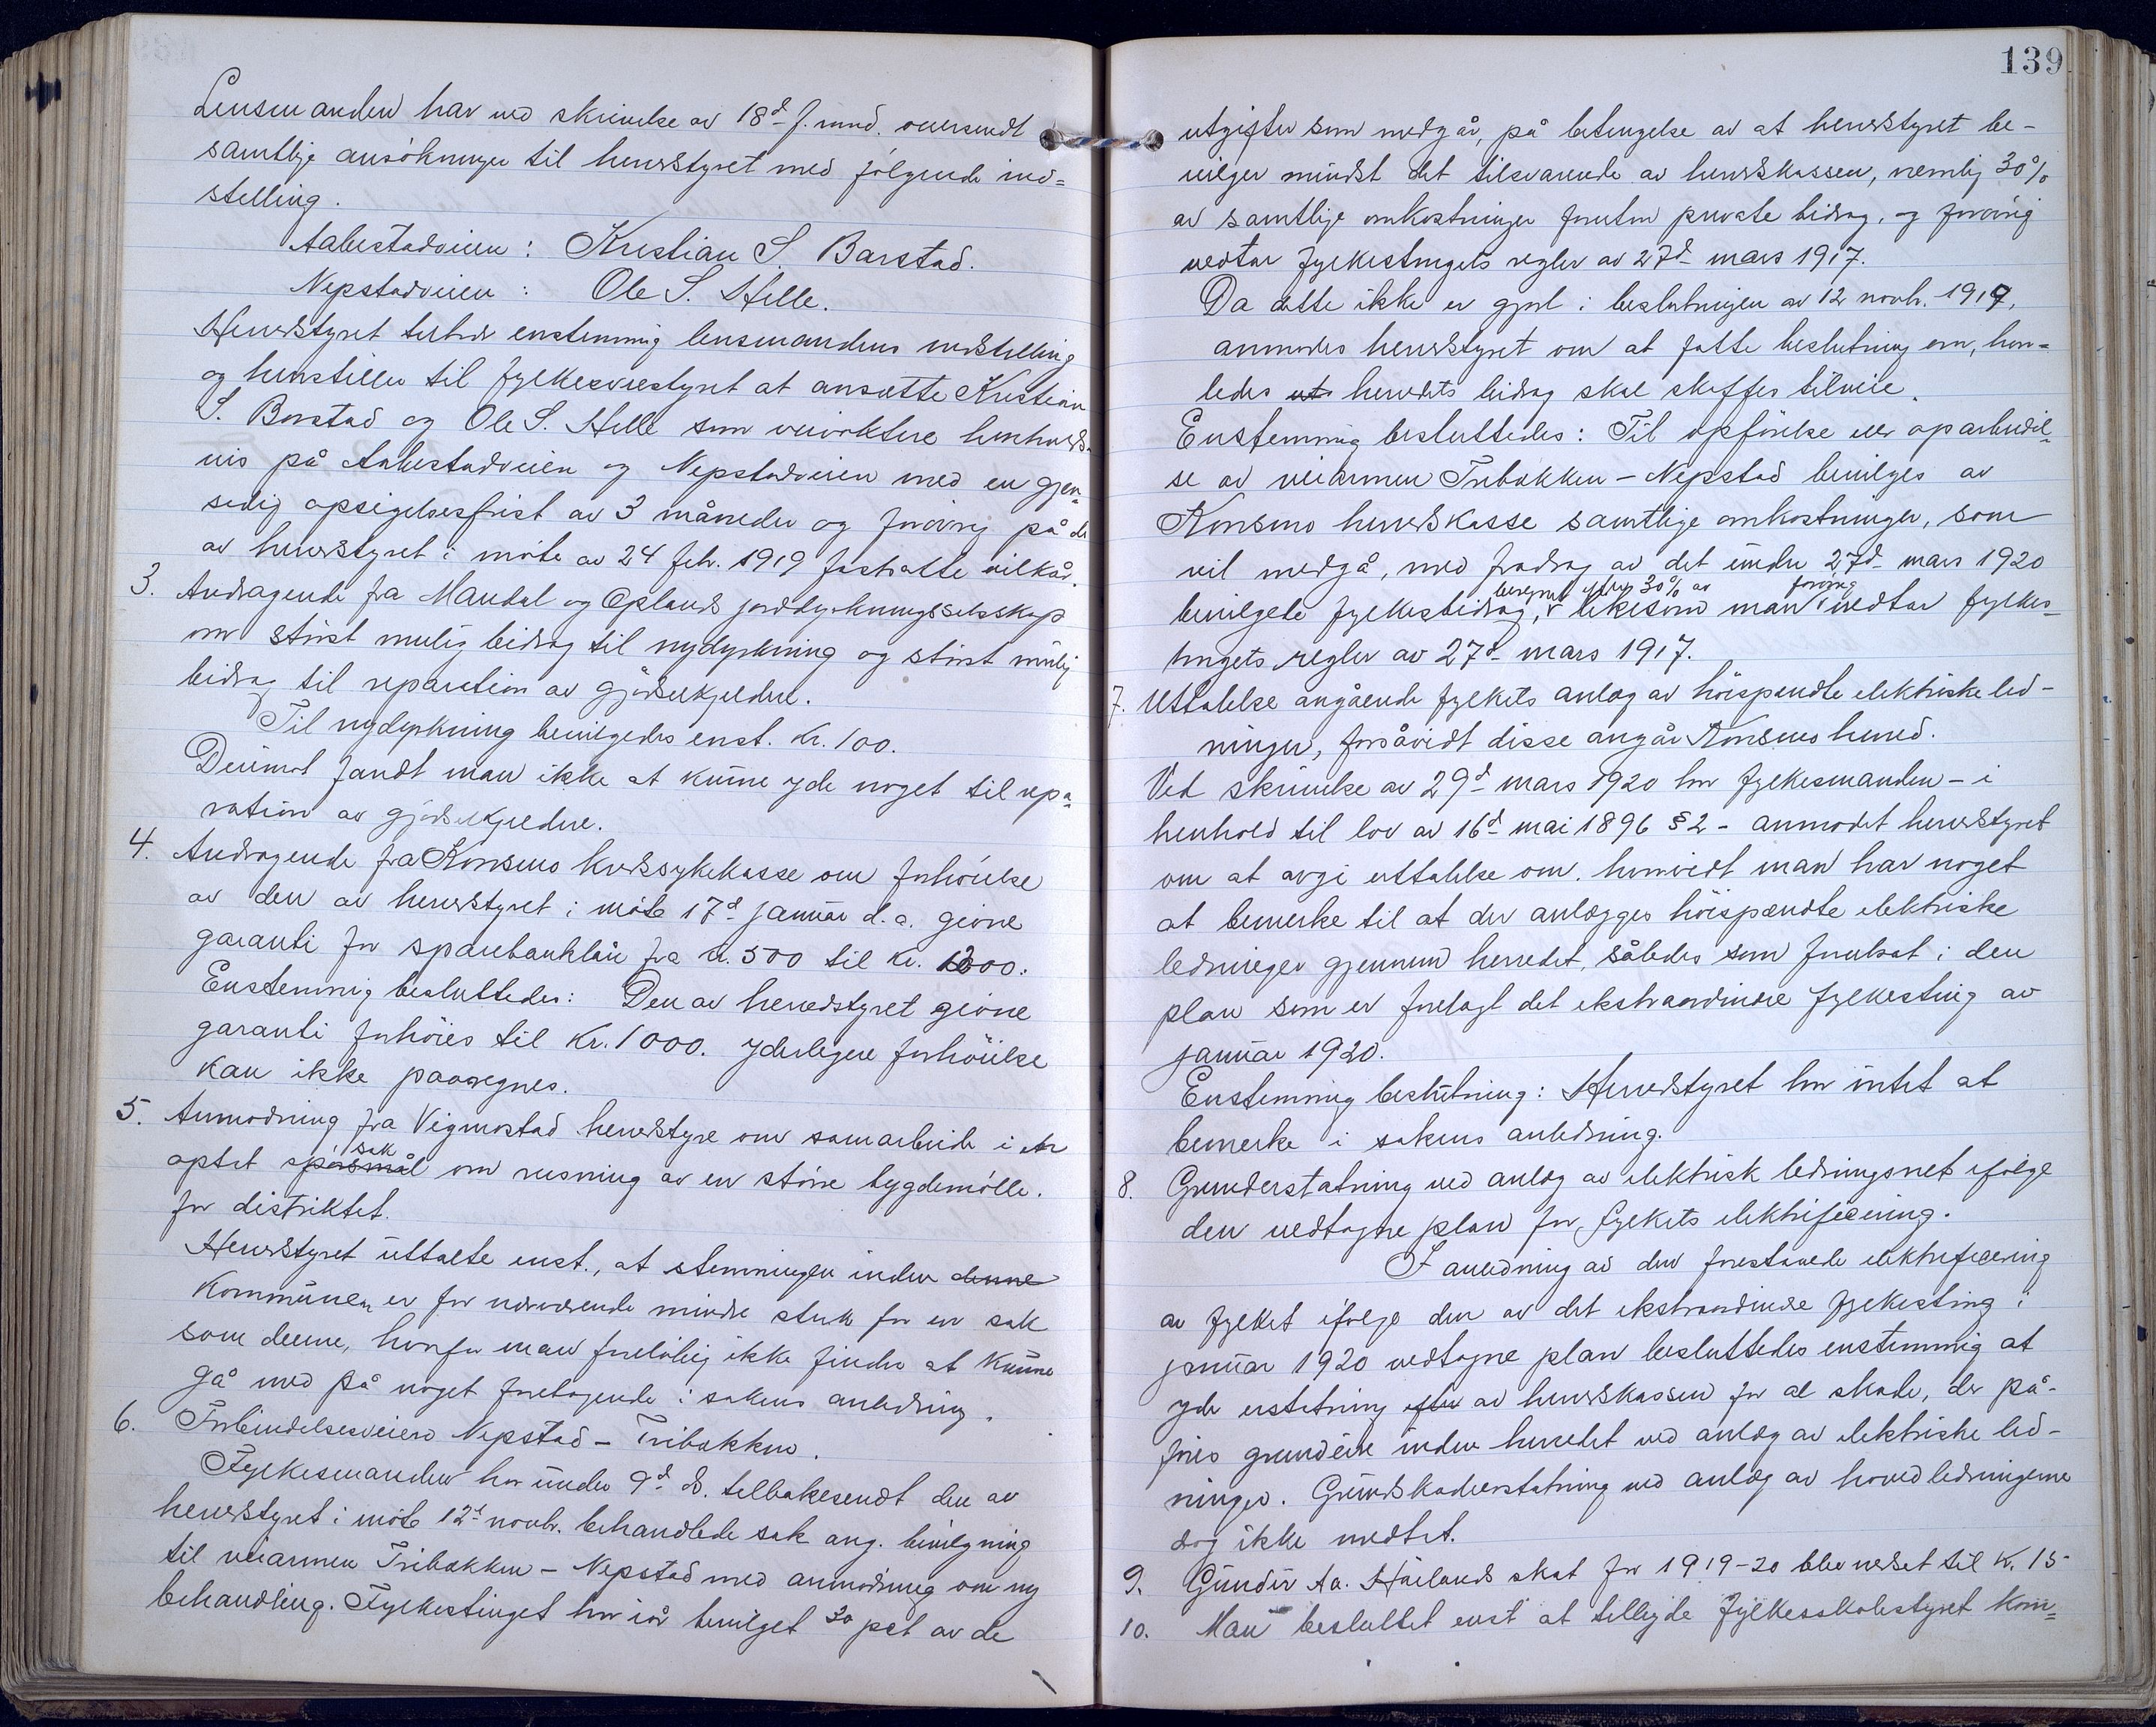 Lensmanden har ved skrivelse av 18d f. mnd. oversendt
samtlige ansökninger til herredstyret med fölgende ind=
stilling.
Aabestadveien: Kristian S Barstad.
Nepstadveien: Ole S. Helle.
Herredstyret tiltræder enstemmig lensmandens indstilling
og henstiller til fylkesveistyret at ansætte Kristian
S. Barstad og Ole S. Helle som veivoktere henholds-
vis på Aabestadveien og Nepstadveien med en gjen-
sidig opsigelsesfrist av 3 måneder og forövrig på de
av herredstyret i möte av 24 febr. 1919 fastsatte vilkår.
3. Andragende fra Mandal og Oplands jorddyrkningsselskap
om störst mulig bidrag til nydyrkning og störst mulig
bidrag til reparation av gjödselkjeldere.
Til nydyrkning bevilgedes enst. kr. 100.
Derimot fandt man ikke at kunne yde noget til repa=
ration av gjödselkjeldere.
4. Andragende fra Konsmo kredssykekasse om forhöielse
av den av herredstyret i möte 17d januar d.a. givne
garanti for sparebanklån fra kr. 500 til kr. 1200.
Enstemmig besluttedes: Den av herredstyret givne
garanti forhöies til Kr. 1000. Yderligere forhöielse
kan ikke paaregnes.
5. Anmodning fra Vigmostad herredstyre om samarbeide i en
optat spörsmål sak om reisning av en större bygdemölle.
for distriktet.
Herredstyret uttalte enst., at stemningen inden denne
kommunen er for nærværende mindre sterk for en sak
som denne, hvorfor man forelöbig ikke finder at kunne
gå med på noget foretagende i sakens anledning.
6. Forbindelsesveien Nepstad – Tribakken.
Fylkesmanden har under 9d ds. tilbakesendt den av
herredstyret i möte 12d novbr. behandlede sak ang. bevilgning
til veiarmen Tribakken – Nepstad med anmodning om ny
behandling. Fylkestinget har iår bevilget 30 pct av de
139
utgifter som medgår, på betingelse av at herredstyret be-
vilger mindst det tilsvarende av herredskassen, nemlig 30%
av samtlige omkostninger foruten private bidrag, og forövrig
vedtar fylkestingets regler av 27d mars 1917.
Da dette ikke er gjort i beslutningen av 12 novbr. 1919,
anmodes herredstyret om at fatte beslutning om, hvor=
ledes ut herredets bidrag skal skaffes tilveie.
Enstemmig besluttedes: Til opförelse eller oparbeidel=
se av veiarmen Tribakken – Nepstad bevilges av
Konsmo herredskasse samtlige omkostninger, som
vil medgå, med fradrag av det under 27d mars 1920
beregnet efter 30% av forövrig
bevilgede fylkesbidrag, likesom man vedtar fylkes-
tingets regler av 27d mars 1917.
7. Uttalelse angående fylkets anlæg av höispændte elektriske led-
ninger, forsåvidt disse angår Konsmo herred.
Ved skrivelse av 29d mars 1920 har fylkesmanden – i
henhold til lov av 16d mai 1896 § 2 – anmodet herredstyret
om at avgi uttalelse om, hvorvidt man har noget
at bemerke til at der anlægges höispændte elektriske
ledninger gjennem herredet, således som forutsat i den
plan som er forelagt det ekstraordinære fylkesting av
januar 1920.
Enstemmig beslutning: Herredstyret har intet at
bemerke i sakens anledning.
8. Grunderstatning ved anlæg av elektrisk ledningsnet ifölge
den vedtagne plan for fylkets elektrificering.
I anledning av den forestaaende elektrificering
av fylket ifölge den av det ekstraordinære fylkesting i
januar 1920 vedtagne plan besluttedes enstemmig at
yde erstatning efter av herredskassen for al skade, der på-
föres grundeiere inden herredet ved anlæg av elektriske led-
ninger. Grundskadeerstatning ved anlæg av hovedledningerne
dog ikke medtat.
9. Gunder Aa. Hårlands skat for 1919–20 blev nedsat til kr. 15-
10. Man besluttet enst at tillegde fylkesskolestyret kom=